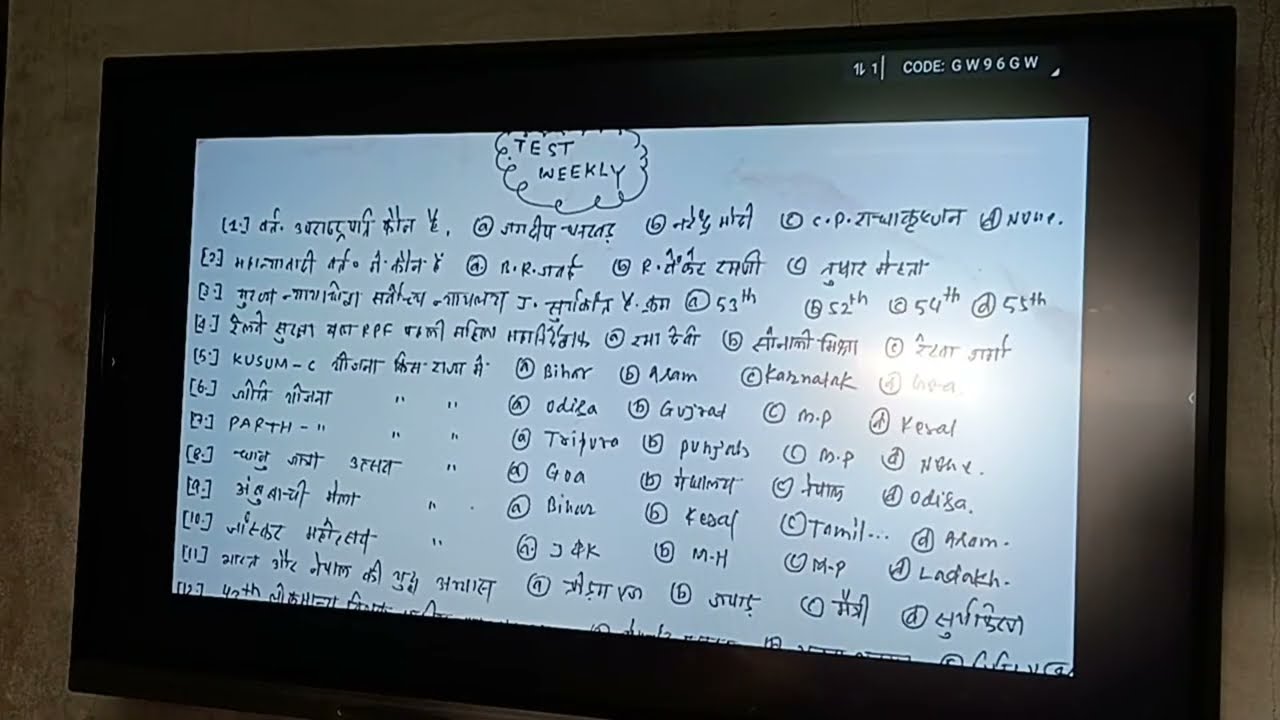 1 CODE: GW96GW
TEST
WEEKLY
[1.] वर्त. उपराष्ट्रपति कौन है. (a) जगदीप धनखड़ (b) नरेन्द्र मोदी (c) C.P. राधाकृष्णन (d) None.
[2.] महान्यायवादी वर्त. में कौन है (a) B.R. गवई (b) R. वेंकेट रमणी (c) तुषार मेहता
[3.] मुख्य न्यायाधीश सर्वोच्च न्यायलय J. सूर्यकांत है. क्रम (a) 53th (b) 52th (c) 54th (d) 55th
[4.] रेलवे सुरक्षा बल RPF पहली महिला महानिर्देशक (a) रमा देवी (b) सोनाली मिश्रा (c) शर्मा
[5.] KUSUM-C योजना किस राज्य में (a) Bihar (b) Asam (c) Karnatak (d) Goa
[6.] योजना " " (a) Odisa (b) Gujrat (c) M.P (d) Keral
[7.] PARTH - " " " (a) Tripura (b) punjab (c) M.P (d) None.
[8.] उत्सव " (a) Goa (b) मेघालय (c) नेपाल (d) Odisa.
[9.] अंबुबाची मेला " (a) Bihar (b) Keral (c) Tamil... (d) Asam.
[10.] जांस्कर महोत्सव " (a) J & K (b) M-H (c) M-P (d) Ladakh.
[11] भारत और नेपाल की युद्ध अभ्यास (a) (b) (c) मैत्री (d) सूर्यकिरण
[12.]